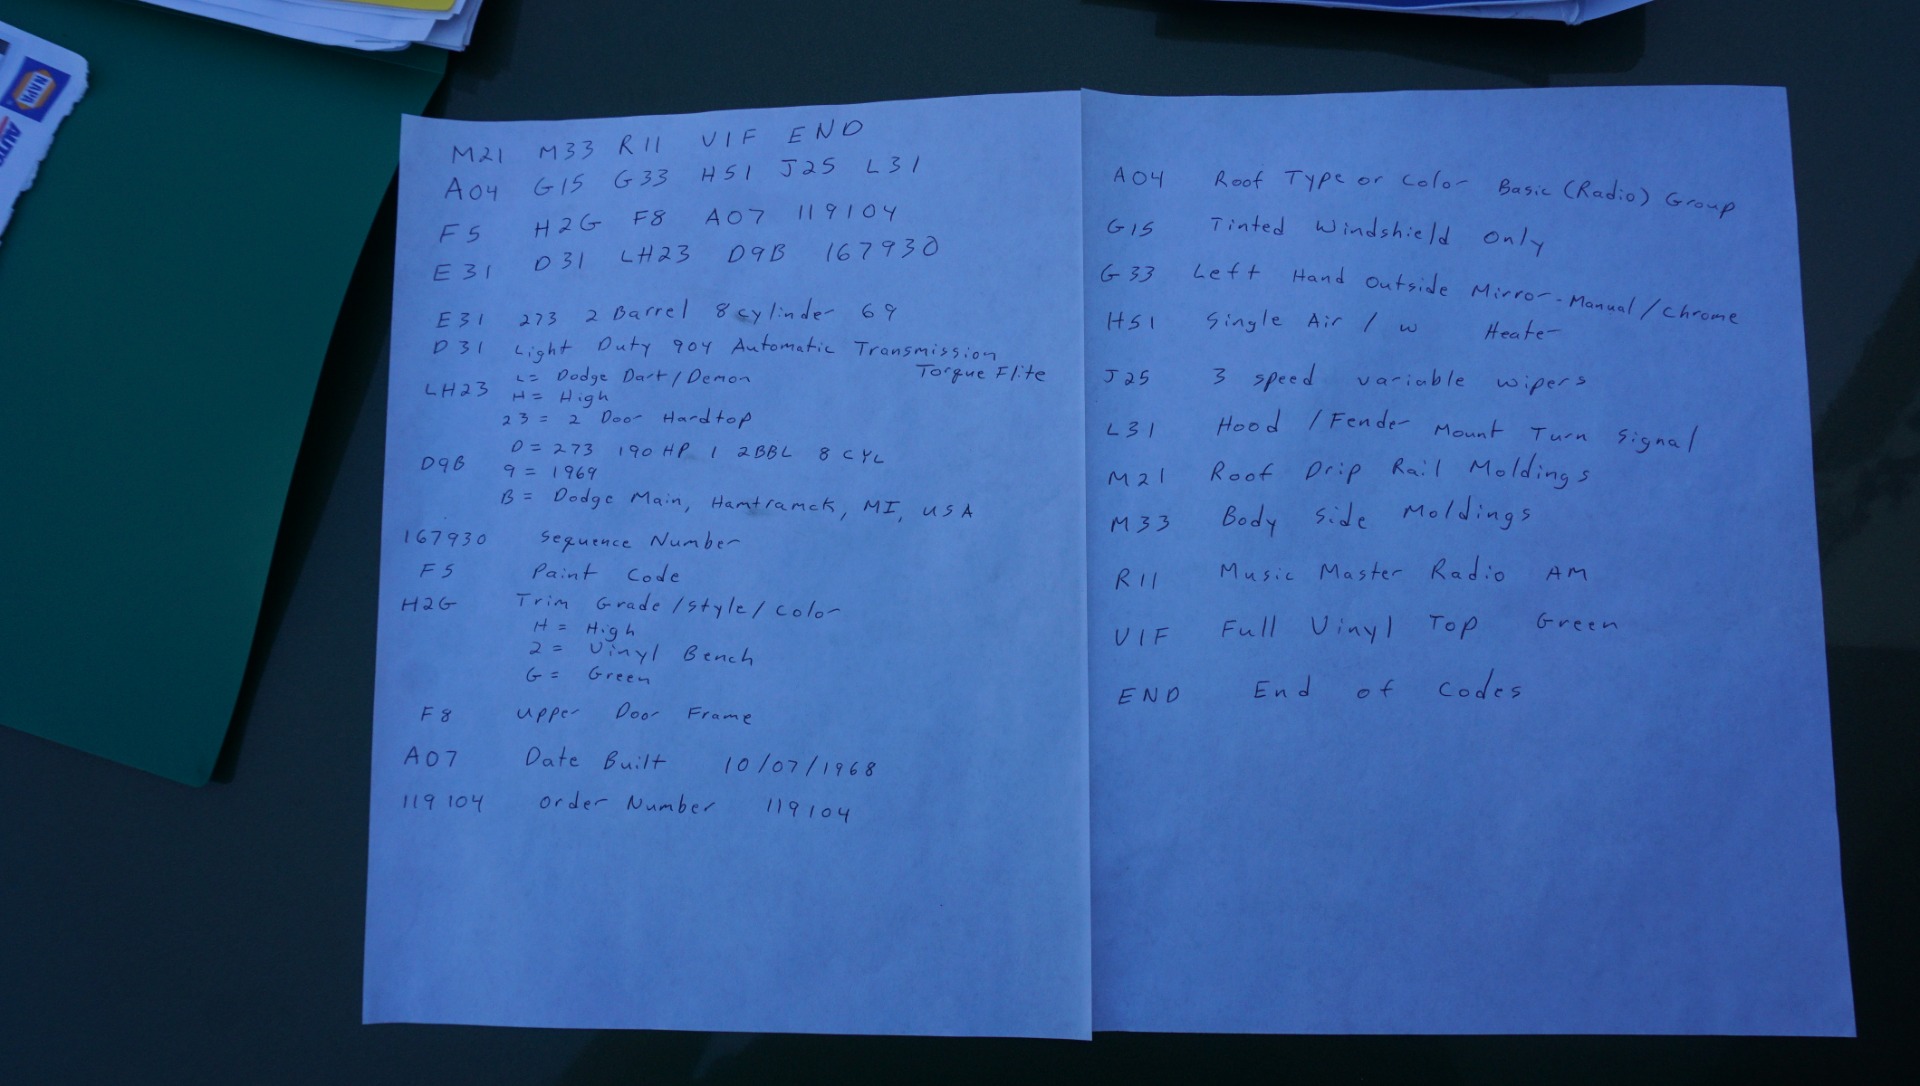 NAPA
AUTO
M21 M33 R11 V1F END
A04 G15 G33 H51 J25 L31
F5 H2G F8 A07 119104
E31 D31 LH23 D9B 167930
E31 273 2 Barrel 8 cylinder 69
D31 Light Duty 904 Automatic Transmission
Torque Flite
LH23 L= Dodge Dart/Demon
H= High
23 = 2 Door Hardtop
D9B D= 273 190 HP 1 2BBL 8 CYL
9 = 1969
B= Dodge Main, Hamtramck, MI, USA
167930 Sequence Number
F5 Paint Code
H2G Trim Grade/style/color
H = High
2 = Vinyl Bench
G = Green
F8 upper Door Frame
A07 Date Built 10/07/1968
119104 order Number 119104
A04 Roof Type or color Basic (Radio) Group
G15 Tinted Windshield Only
G33 Left Hand Outside Mirror-Manual/Chrome
H51 Single Air / w Heater
J25 3 speed variable wipers
L31 Hood /Fender Mount Turn Signal
M21 Roof Drip Rail Moldings
M33 Body Side Moldings
R11 Music Master Radio AM
V1F Full Vinyl Top Green
END End of Codes